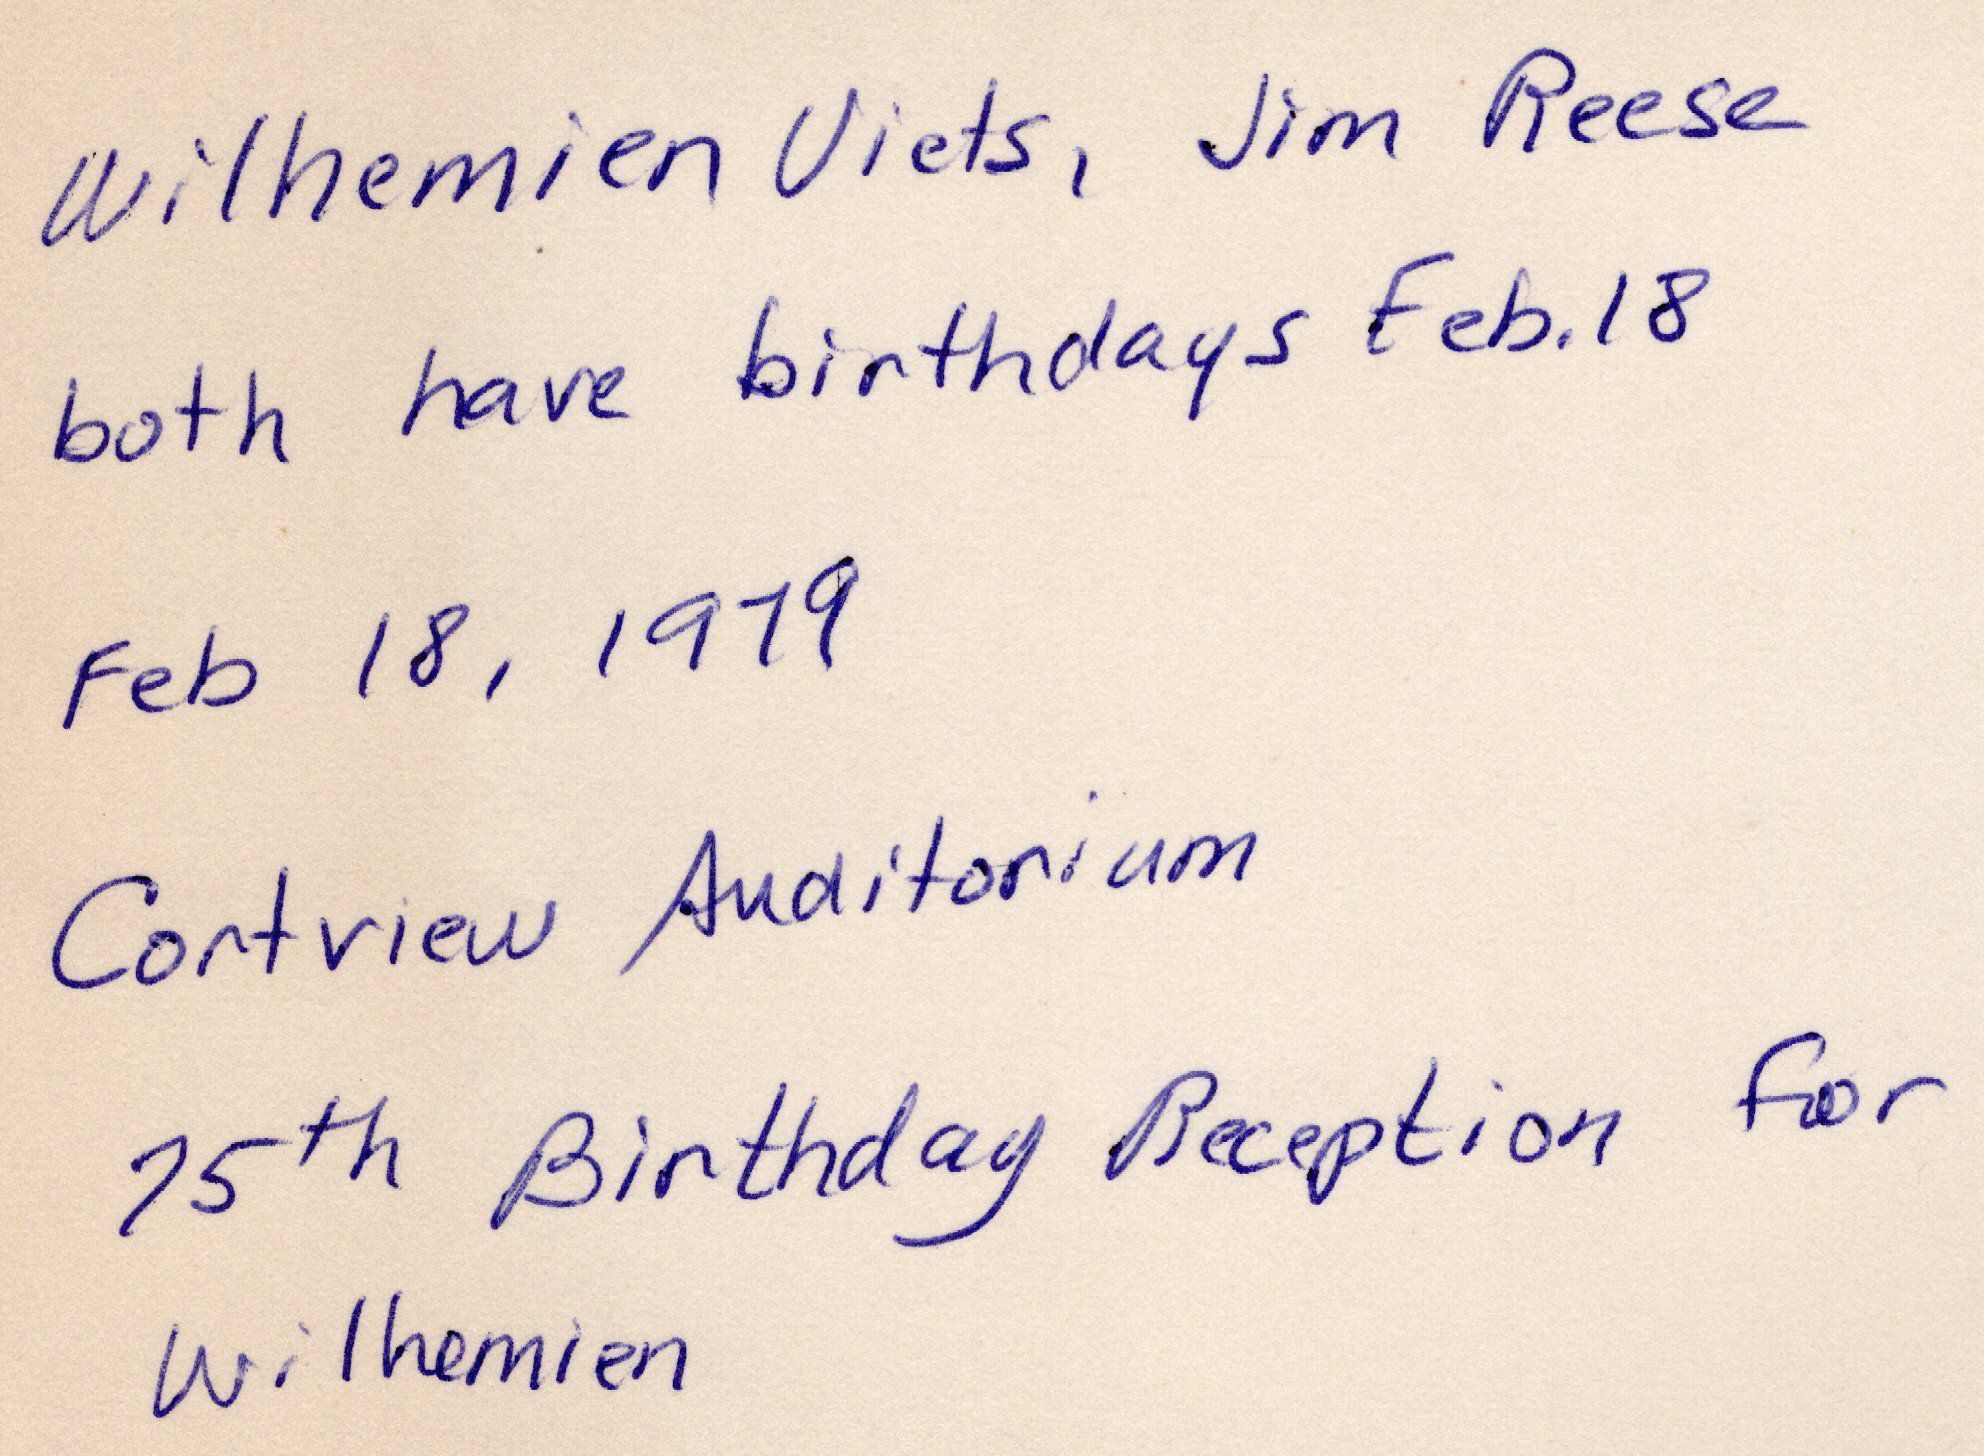 Wilhemien Viets, Jim Reese
both have birthdays Feb. 18
Feb 18, 1979
Cortview Auditorium
75th Birthday Reception for
Wilhemien